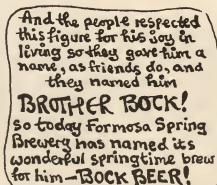 And the people respected
this figure for his joy in
living so they gave him a
name, as friends do, and
they named him
BROTHER BOCK!
So today Formosa Spring
Brewery has named its
wonderful springtime brew
for him—BOCK BEER!